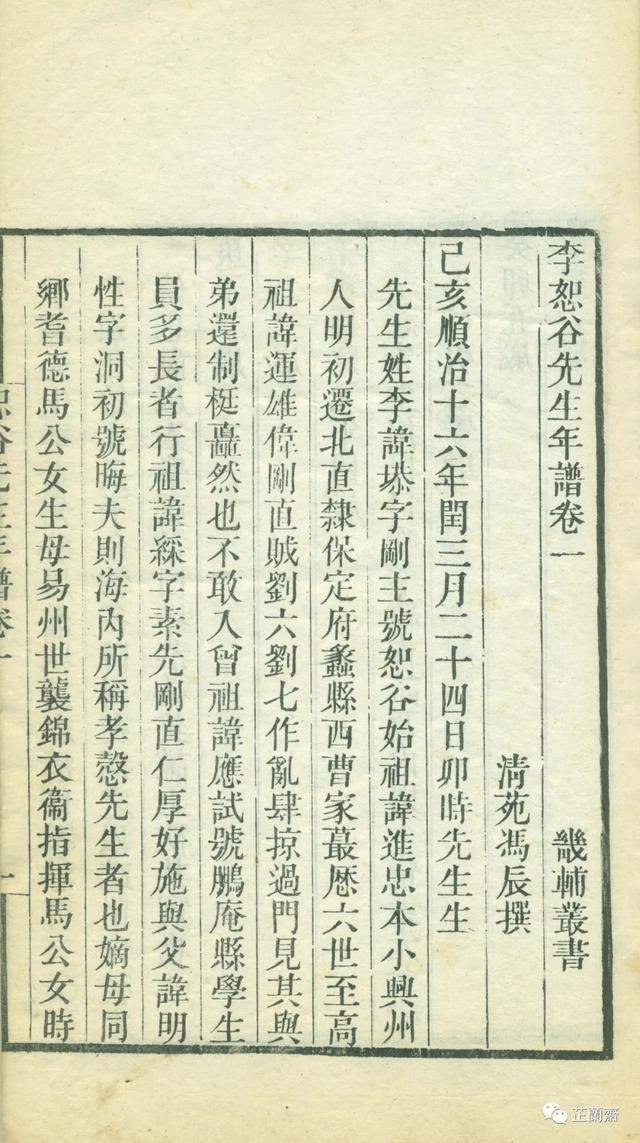 李恕谷先生年譜卷一　畿輔叢書
清苑馮辰撰
己亥順治十六年閏三月二十四日卯時先生生
先生姓李諱塨字剛主號恕谷始祖諱進忠本小興州
人明初遷北直隸保定府蠡縣西曹家蕞歷六世至高
祖諱運雄偉剛直賊劉六劉七作亂肆掠過門見其與
弟還制梃矗然也不敢入曾祖諱應試號鵬庵縣學生
員多長者行祖諱綵字素先剛直仁厚好施與父諱明
性字洞初號晦夫則海內所稱孝愨先生者也嫡母同
鄉耆德馬公女生母易州世襲錦衣衞指揮馬公女時
恕谷先生年譜卷一
一
芷蘭齋